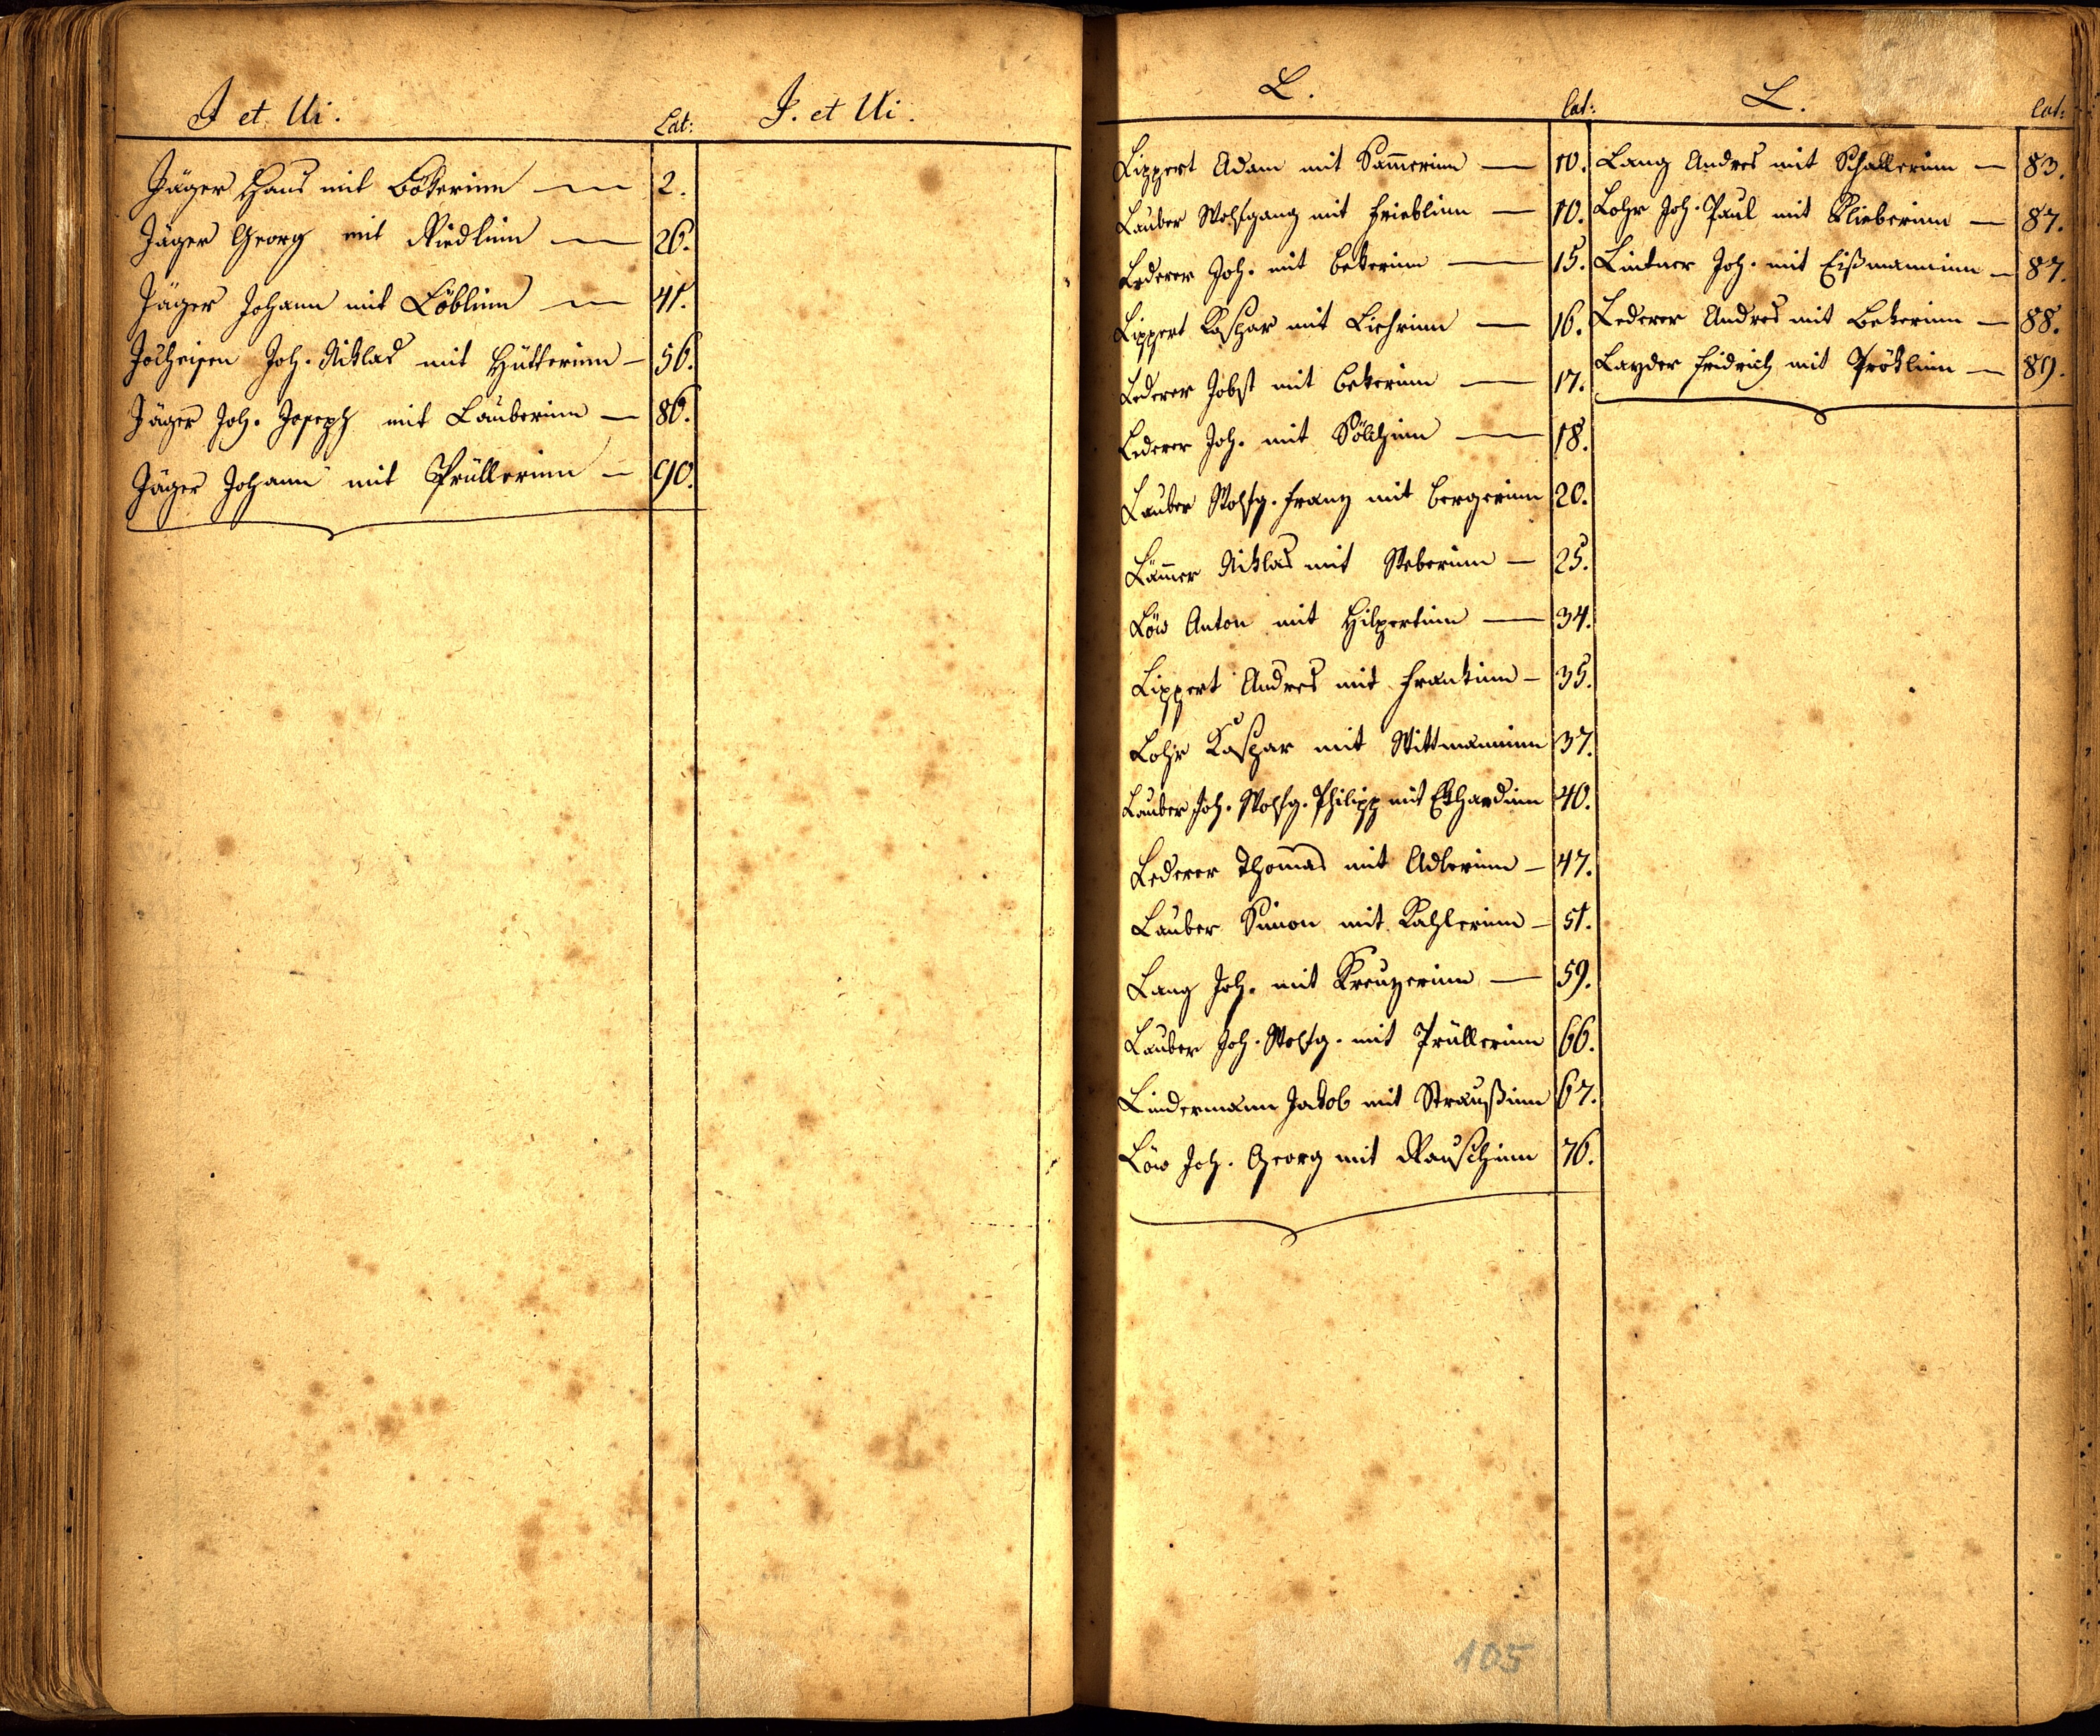 J et Ui.
Lat:
J. et Ui.
Jäger Hans mit Bökerinn — 2.
Jäger Georg mit Riedlinn — 26.
Jäger Johann mit Löblinn — 41.
Joh. Niklas mit Hütterinn — 56.
Jäger Joh. Joseph mit Lauberinn — 86.
Jäger Johann mit Prüllerinn — 90.
L.
Lat:
Lippert Adam mit Sam̄erinn — 10.
Lauber Wolfgang mit Frieblinn — 10.
Lederer Joh. mit Bekerinn — 15.
Lippert Kaspar mit Liehrinn — 16.
Lederer Jobst mit Bekerinn — 17.
Lederer Joh. mit Sölchinn — 18.
Lauber Wolfg. Franz mit Bergerinn 20.
Läm̄er Niklas mit Weberinn — 25.
Löw Anton mit Hilpertinn — 34.
Lippert Andres mit Frankinn — 35.
Lohr Kaspar mit Wittmanninn 37.
Lauber Joh. Wolfg. Philipp mit Ekhardinn 40.
Lederer Thomas mit Adlerinn — 47.
Lauber Simon mit Kahlerinn — 51.
Lang Joh. mit Kreuzerinn — 59.
Lauber Joh. Wolfg. mit Prüllerinn 66.
Lindermann Jakob mit Straußinn 67.
Löw Joh. Georg mit Rauschinn 76.
L.
Lat:
Lang Andres mit Schallerinn — 83.
Lohr Joh. Paul mit Klieberinn — 87.
Lintner Joh. mit Eißmanninn — 87.
Lederer Andres mit Bekerinn — 88.
Layder Fridrich mit Pröklinn — 89.
105